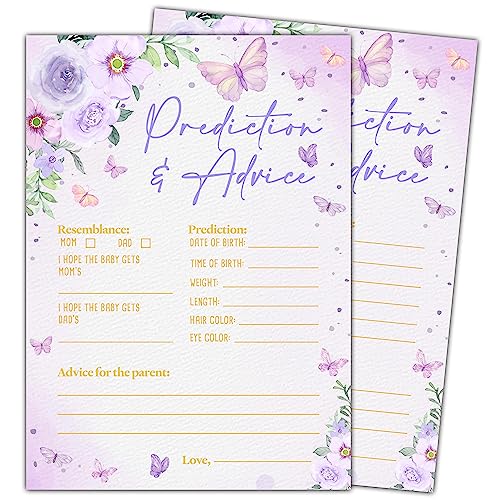 Prediction
& Advice
Resemblance: Prediction:
MOM DAD DATE OF BIRTH:
I HOPE THE BABY GETS
MOM'S
TIME OF BIRTH:
WEIGHT:
I HOPE THE BABY GETS
DAD'S
LENGTH:
HAIR COLOR:
EYE COLOR:
Advice for the parent:
Love,
diction
Advice